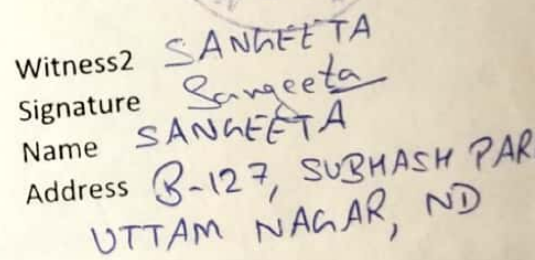 Witness2 SANGEETA
Signature Sangeeta
Name SANGEETA
Address B-127, SUBHASH PAR
UTTAM NAGAR, ND